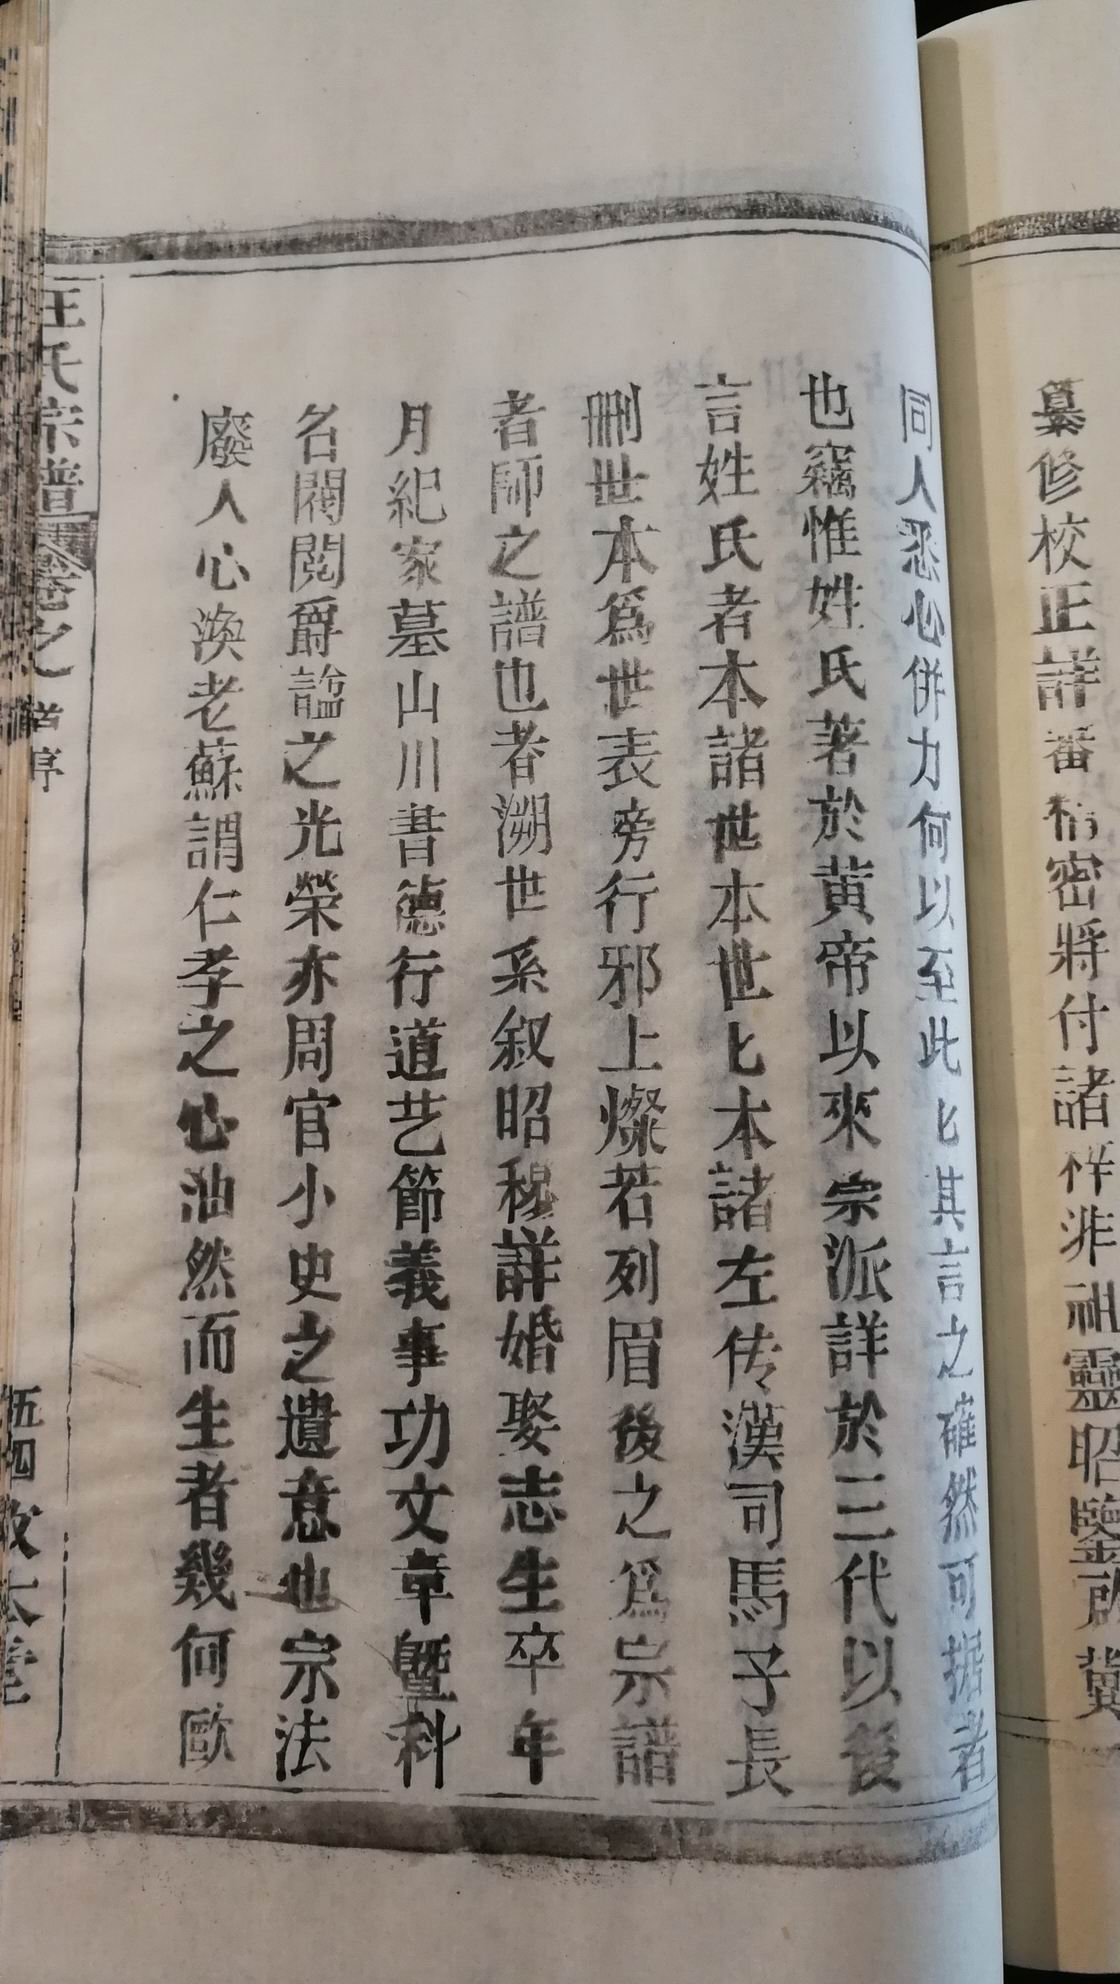 纂修校正詳番精密將付諸梓非祖靈昭鑒所冀
同人悉心併力何以至此匕其言之確然可据者
也竊惟姓氏著於黄帝以來宗派詳於三代以後
言姓氏者本諸世本世匕本諸左传漢司馬子長
刪世本爲世表旁行邪上燦若列眉後之爲宗譜
者師之譜也者溯世系叙昭穆詳婚娶志生卒年
月紀家墓山川書德行道艺節義事功文章曁科
名閥閱爵謚之光榮亦周官小史之遺意也宗法
廢人心渙老蘇謂仁孝之心油然而生者幾何歐
汪氏宗譜 卷之 首序 敦本堂